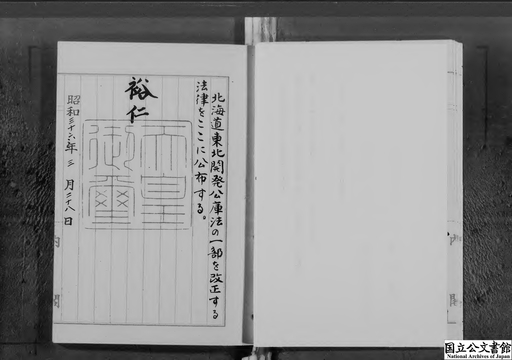 北海道東北開発公庫法の一部を改正する
法律をここに公布する。
裕仁
天皇御璽
昭和三十六年三月二十八日
国立公文書館
National Archives of Japan